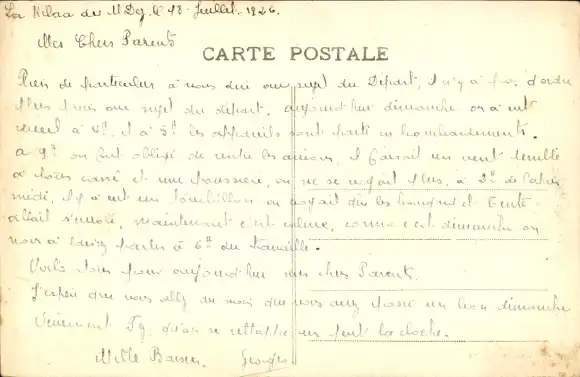 La Kelaa des M Dez, le 18 Juillet 1926.
Mes Chers Parents
CARTE POSTALE
Rien de particulier à vous dire au sujet du Départ, il n'y a pas d'ordre
plus précis au sujet du départ. aujourd'hui dimanche on a eut
réveil à 4h, et à 5h les appareils sont partis en bombardements.
a 9h on fut obligé de rentrer les avions, il faisait un vent terrible
à tout cassé et une poussière, on ne se voyait plus, à 2h de l'après
midi, il y a eut un tourbillon on voyait que les hangars et tente
allait s'envolé, maintenant c'est calme, comme c'est dimanche on
nous a laissé partir à 6h du travaille.
Voilà tous pour aujourd'hui mes chers Parents.
J'espère que vous allez du mois que vous avez passé un bon dimanche
Vivement qu'on se rattrappe un peut la cloche.
Mille Baisers. Georges